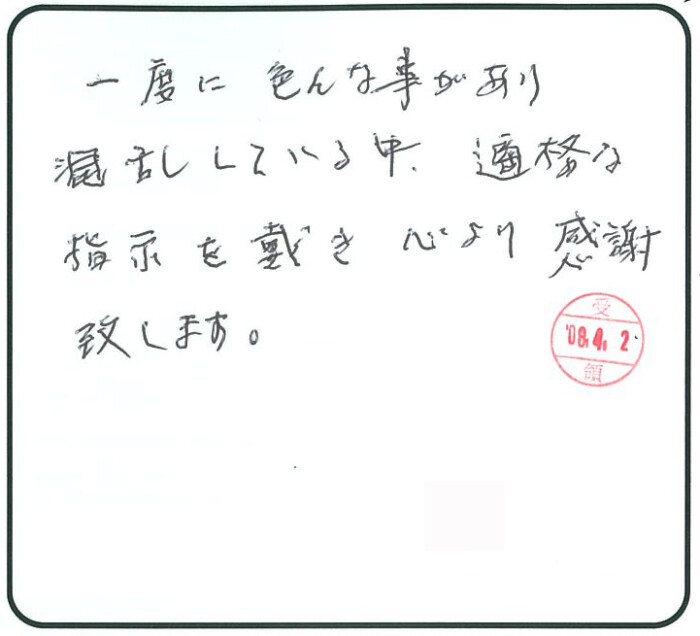 一度に 色んな事があり
混乱している中、適格な
指示を戴き 心より 感謝
致します。
受
'08.4.2
領